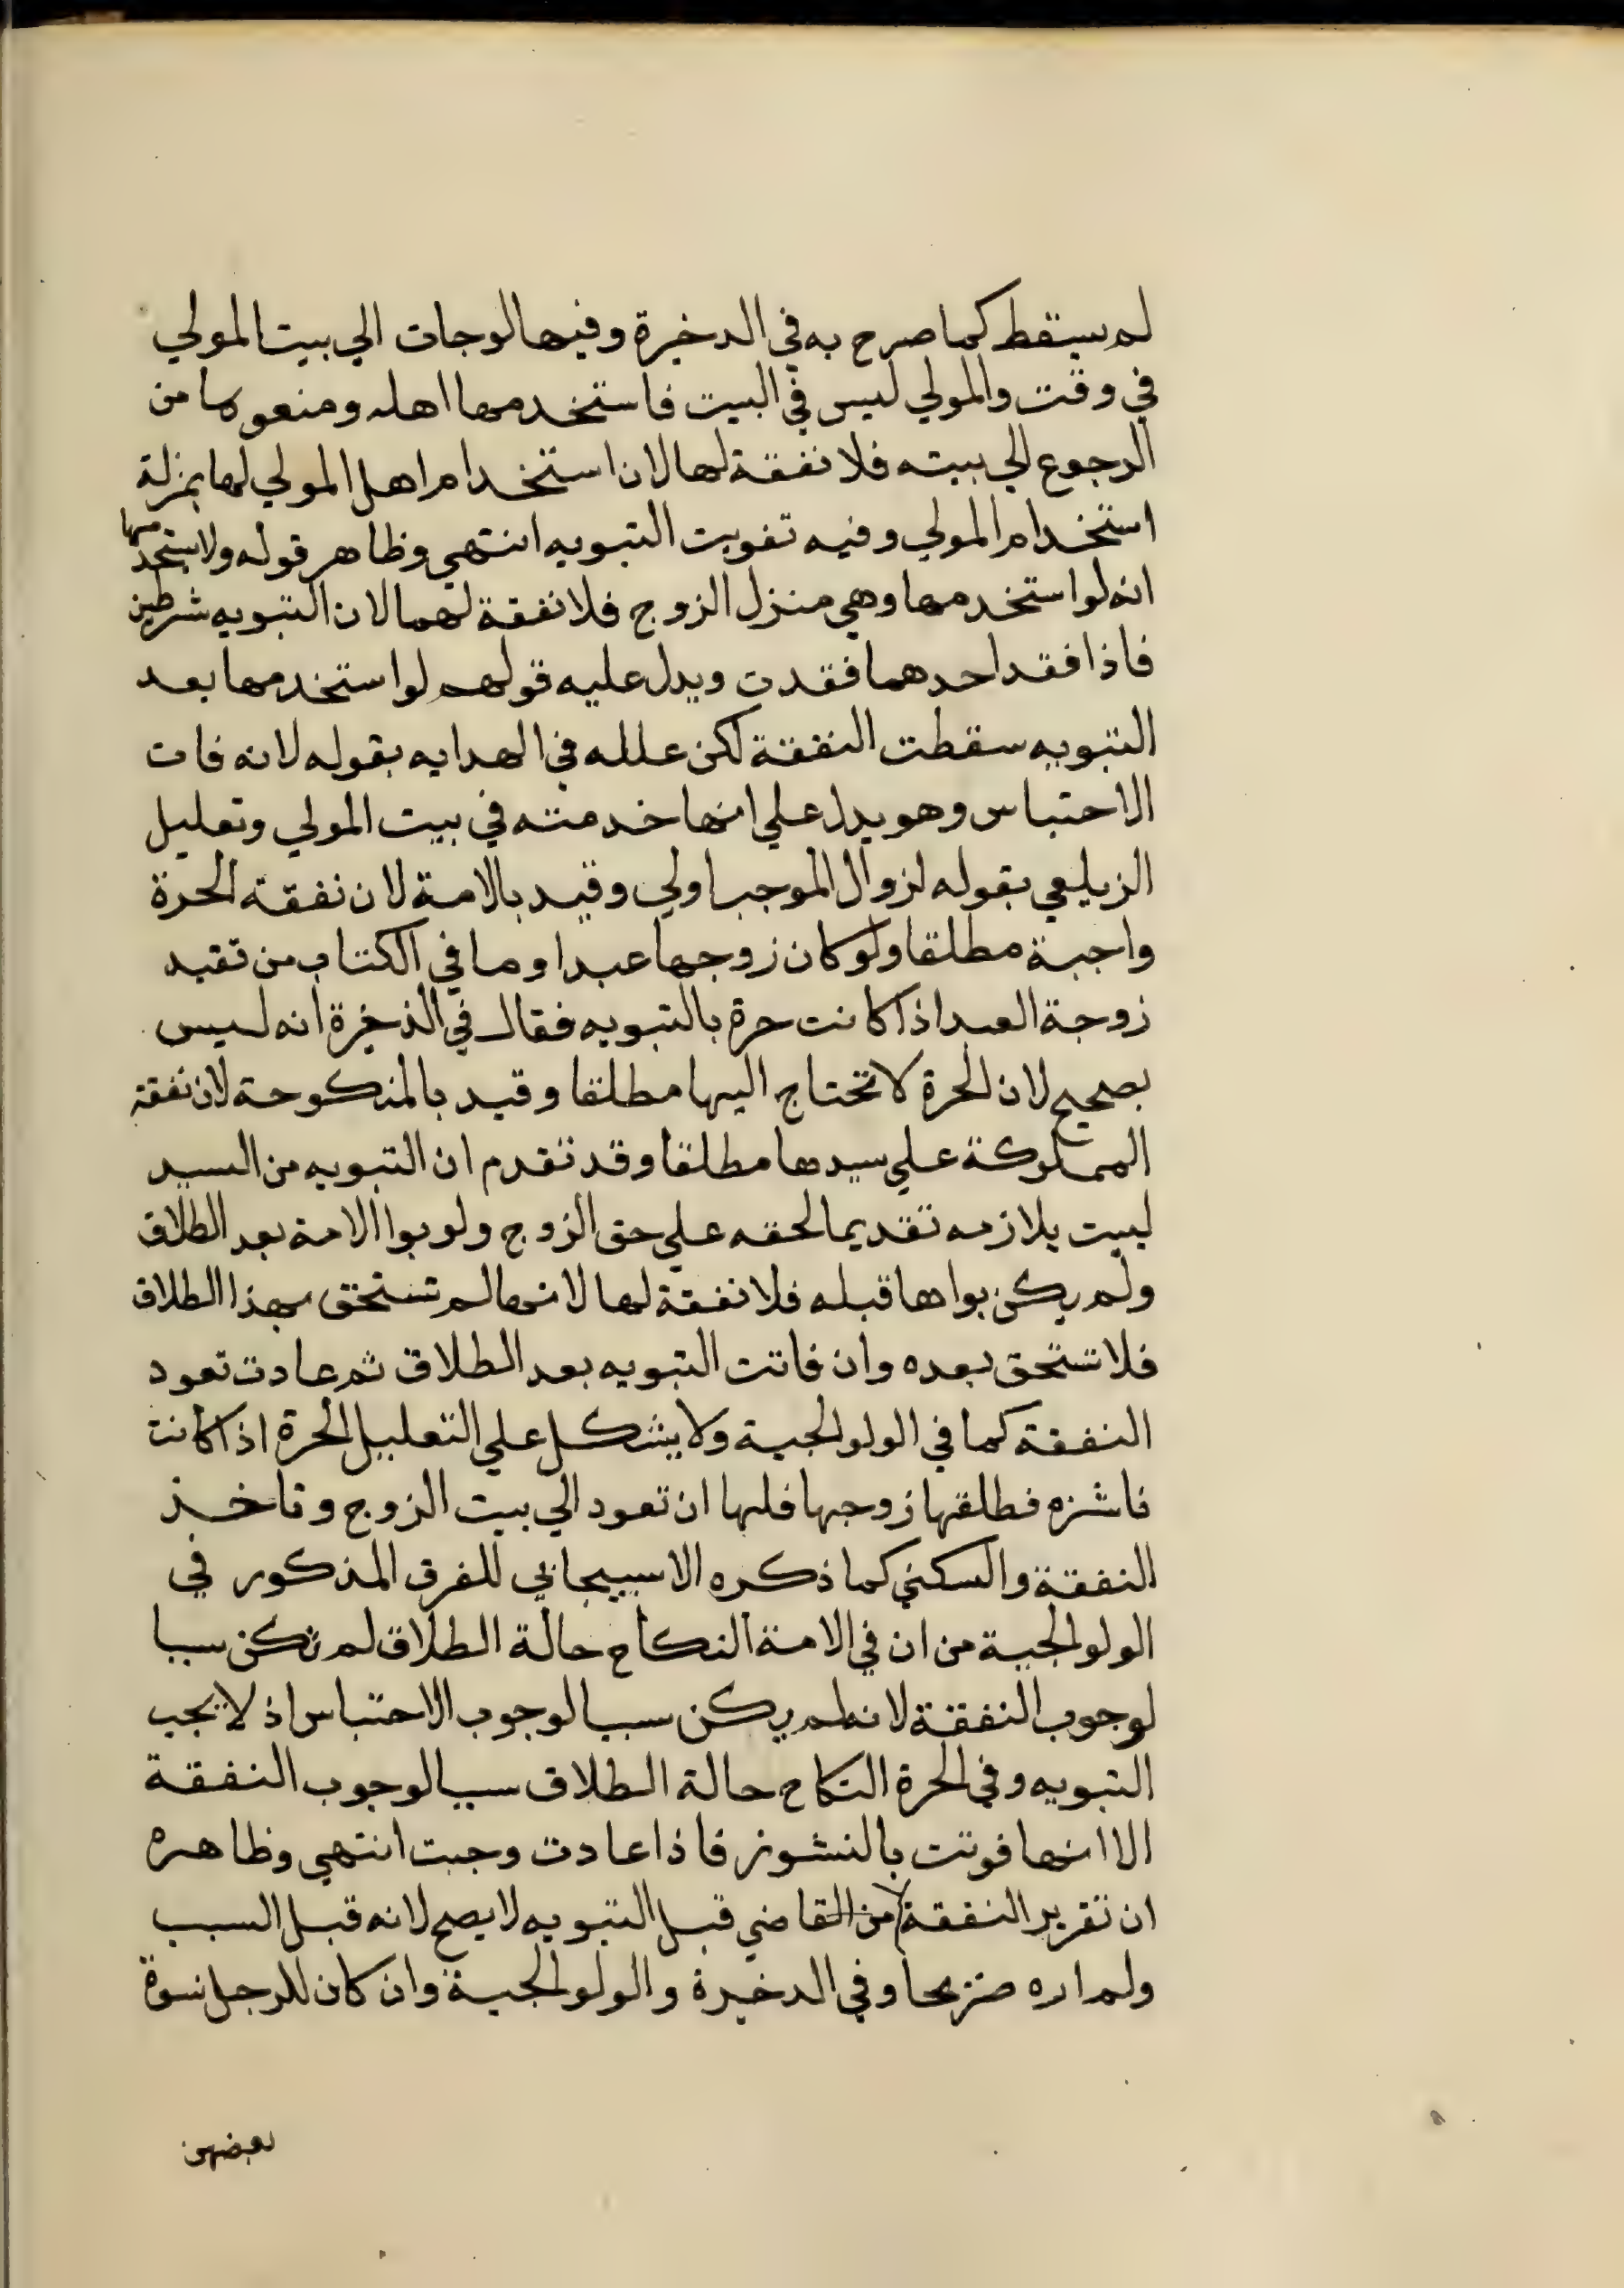 لم يسقط كما صرح به في الدخيرة وفيها لو جات الي بيت المولي
في وقت والمولي ليس في البيت فاستخدمها اهله ومنعوها من
الرجوع الي بيته فلا نفقة لها لان استخدام اهل المولي لها بمنزلة
استخدام المولي وفيه تفويت التبويه انتهي وظاهر قوله ولا يستخدمها
انه لو استخدمها وهي منزل الزوج فلا نفقة لهما لان التبويه شرطين
فاذا فقد احدهما فقدت ويدل عليه قولهم لو استخدمها بعد
التبويه سقطت النفقة لكن علله في الهدايه بقوله لانه فات
الاحتباس وهو يدل علي انها خدمته في بيت المولي وتعليل
الزيلعي بقوله لزوال الموجب اولي وقيد بالامة لان نفقة الحرة
واجبة مطلقا ولو كان زوجها عبدا وما في الكتاب من تقيد
زوجة العبد اذا كانت حرة بالتبويه فقال في الذخيرة انه ليس
بصحيح لان الحرة لا تحتاج اليها مطلقا وقيد بالمنكوحة لان نفقة
المملوكة علي سيدها مطلقا وقد تقدم ان التبويه من السيد
ليست بلازمه تقديما لحقه علي حق الزوج ولو بوا الامة بعد الطلاق
ولم يكن بواها قبله فلا نفقة لها لانها لم تستحق بهذا الطلاق
فلا تستحق بعده وان فاتت التبويه بعد الطلاق ثم عادت تعود
النفقة كما في الولوالجية ولا يشكل علي التعليل الحرة اذا كانت
ناشزه فطلقها زوجها فلها ان تعود الي بيت الزوج وتاخذ
النفقة والسكني كما ذكره الاسبيجابي للفرق المذكور في
الولوالجية من ان في الامة النكاح حالة الطلاق لم تكن سببا
لوجوب النفقة لانه لم يكن سببا لوجوب الاحتباس اذ لا يجب
التبويه وفي الحرة النكاح حالة الطلاق سببا لوجوب النفقة
الا انها فوتت بالنشوز فاذا عادت وجبت انتهي وظاهره
ان تقرير النفقة من القاضي قبل التبويه لا يصح لانه قبل السبب
ولم اره صريحا وفي الدخيرة والولوالجية وان كان للرجل نسوة
بعضهن